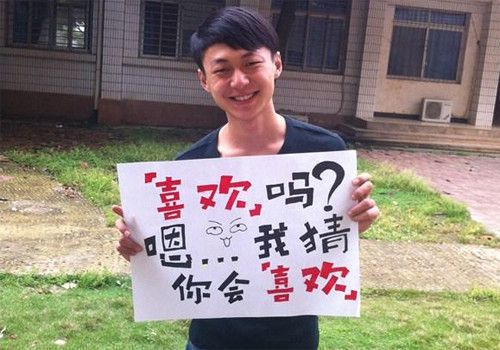 「喜欢」吗?
嗯...我猜
你会「喜欢」